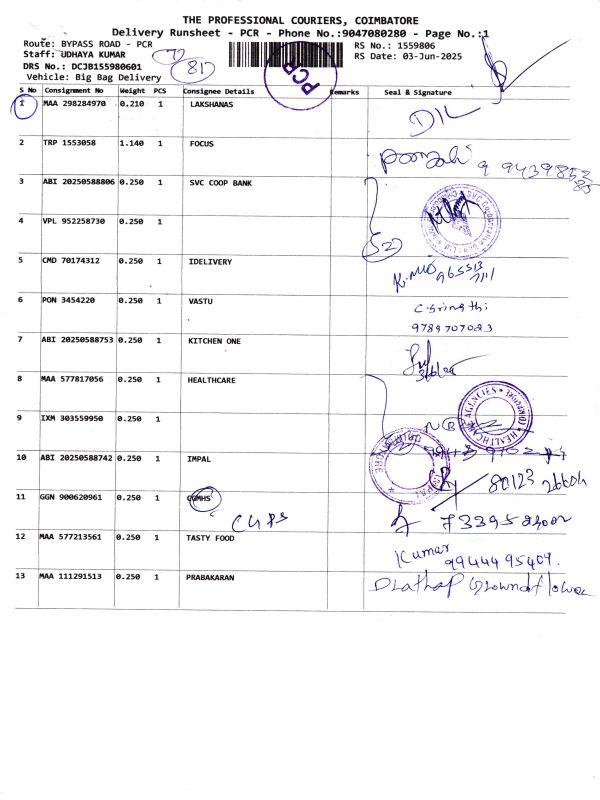 THE PROFESSIONAL COURIERS, COIMBATORE
Delivery Runsheet - PCR - Phone No.:9047080280 - Page No.:1
Route: BYPASS ROAD - PCR
RS No.: 1559806
Staff: UDHAYA KUMAR
RS Date: 03-Jun-2025
DRS No.: DCJB155980601
Vehicle: Big Bag Delivery
PCR
S No Consignment No Weight PCS Consignee Details Remarks Seal & Signature
1 MAA 298284970 0.210 1 LAKSHANAS
2 TRP 1553058 1.140 1 FOCUS
3 ABI 20250588806 0.250 1 SVC COOP BANK
4 VPL 952258730 0.250 1
5 CMD 70174312 0.250 1 IDELIVERY
6 PON 3454220 0.250 1 VASTU
9789707023
7 ABI 20250588753 0.250 1 KITCHEN ONE
8 MAA 577817056 0.250 1 HEALTHCARE
HEALTHCARE AGENCIES
9 IXM 303559950 0.250 1
10 ABI 20250588742 0.250 1 IMPAL
80123 26604
11 GGN 900620961 0.250 1 CGMHS
12 MAA 577213561 0.250 1 TASTY FOOD
Kumar
9944495409.
13 MAA 111291513 0.250 1 PRABAKARAN